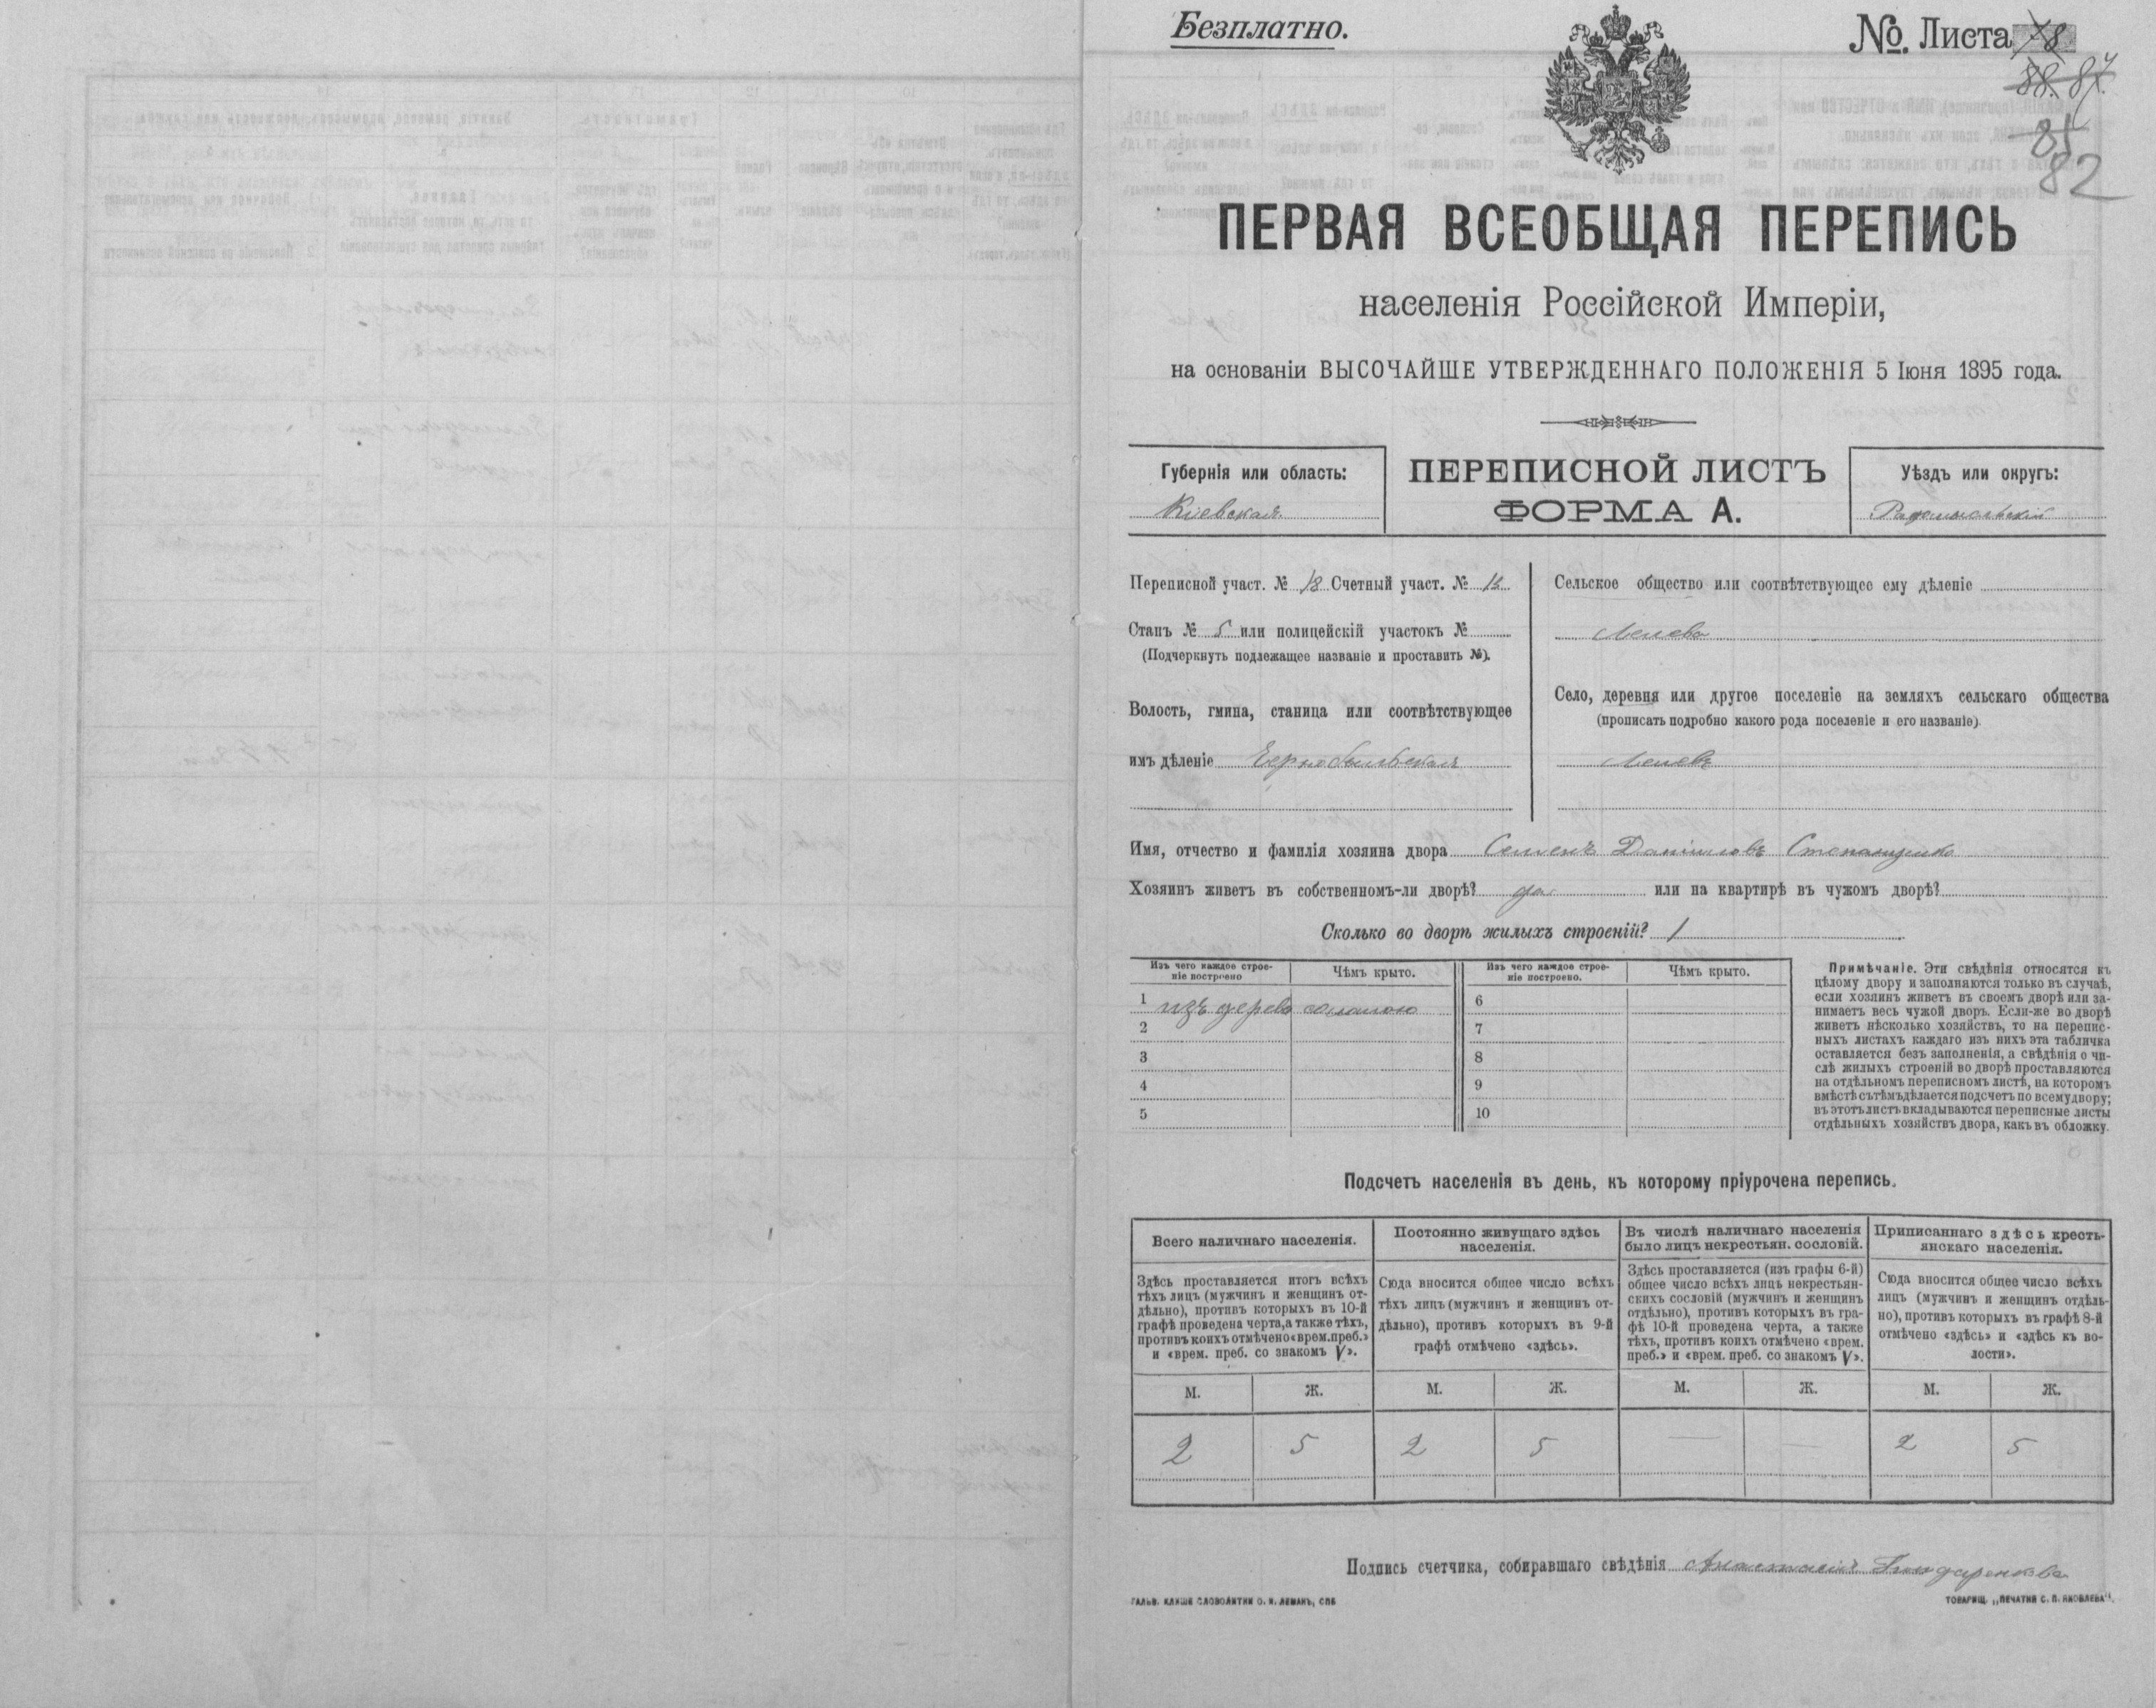 Безплатно.
№. Листа 78
88. 87.
85
82
ПЕРВАЯ ВСЕОБЩАЯ ПЕРЕПИСЬ
населенія Россійской Имперіи,
на основаніи ВЫСОЧАЙШЕ УТВЕРЖДЕННАГО ПОЛОЖЕНІЯ 5 Іюня 1895 года.
Губернія или область:
Кіевская
ПЕРЕПИСНОЙ ЛИСТЪ
ФОРМА А.
Уѣздъ или округъ:
Радомысльскій
Переписной участ. № 18 Счетный участ. №
Станъ № 5 или полицейскій участокъ №
(Подчеркнуть подлежащее названіе и проставить №).
Волость, гмина, станица или соотвѣтствующее
имъ дѣленіе Чернобыльская
Сельское общество или соотвѣтствующее ему дѣленіе
Лелева
Село, деревня или другое поселеніе на земляхъ сельскаго общества
(прописать подробно какого рода поселеніе и его названіе).
Лелевъ
Имя, отчество и фамилія хозяина двора Семенъ Даніиловъ
Хозяинъ живетъ въ собственномъ-ли дворѣ? да или на квартирѣ въ чужомъ дворѣ?
Сколько во дворѣ жилыхъ строеній? 1
Изъ чего каждое строе-
ніе построено
Чѣмъ крыто.
Изъ чего каждое строе-
ніе построено.
Чѣмъ крыто.
1 изъ дерева соломою
2
3
4
5
6
7
8
9
10
Примѣчаніе. Эти свѣдѣнія относятся къ
цѣлому двору и заполняются только въ случаѣ,
если хозяинъ живетъ въ своемъ дворѣ или за-
нимаетъ весь чужой дворъ. Если-же во дворѣ
живетъ нѣсколько хозяйствъ, то на перепис-
ныхъ листахъ каждаго изъ нихъ эта табличка
оставляется безъ заполненія, а свѣдѣнія о чи-
слѣ жилыхъ строеній во дворѣ проставляются
на отдѣльномъ переписномъ листѣ, на которомъ
вмѣстѣ съ тѣмъ дѣлается подсчетъ по всему двору;
въ этотъ листъ вкладываются переписные листы
отдѣльныхъ хозяйствъ двора, какъ въ обложку.
Подсчетъ населенія въ день, къ которому пріурочена перепись.
Всего наличнаго населенія.
Здѣсь проставляется итогъ всѣхъ
тѣхъ лицъ (мужчинъ и женщинъ от-
дѣльно), противъ которыхъ въ 10-й
графѣ проведена черта, а также тѣхъ,
противъ коихъ отмѣчено «врем. преб.»
и «врем. преб. со знакомъ V».
Постоянно живущаго здѣсь
населенія.
Сюда вносится общее число всѣхъ
тѣхъ лицъ (мужчинъ и женщинъ от-
дѣльно), противъ которыхъ въ 9-й
графѣ отмѣчено «здѣсь».
Въ числѣ наличнаго населенія
было лицъ некрестьян. сословій.
Здѣсь проставляется (изъ графы 6-й)
общее число всѣхъ лицъ некрестьян-
скихъ сословій (мужчинъ и женщинъ
отдѣльно), противъ которыхъ въ гра-
фѣ 10-й проведена черта, а также
тѣхъ, противъ коихъ отмѣчено «врем.
преб.» и «врем. преб. со знакомъ V».
Приписаннаго здѣсь кресть-
янскаго населенія.
Сюда вносится общее число всѣхъ
лицъ (мужчинъ и женщинъ отдѣль-
но), противъ которыхъ въ графѣ 8-й
отмѣчено «здѣсь» и «здѣсь къ во-
лости».
М. Ж. М. Ж. М. Ж. М. Ж.
2 5 2 5 — — 2 5
Подпись счетчика, собиравшаго свѣдѣнія
ГАЛЬВ. КЛИШЕ СЛОВОЛИТНИ О. И. ЛЕМАНЪ, СПБ
ТОВАРИЩ. „ПЕЧАТНЯ С. П. ЯКОВЛЕВА".